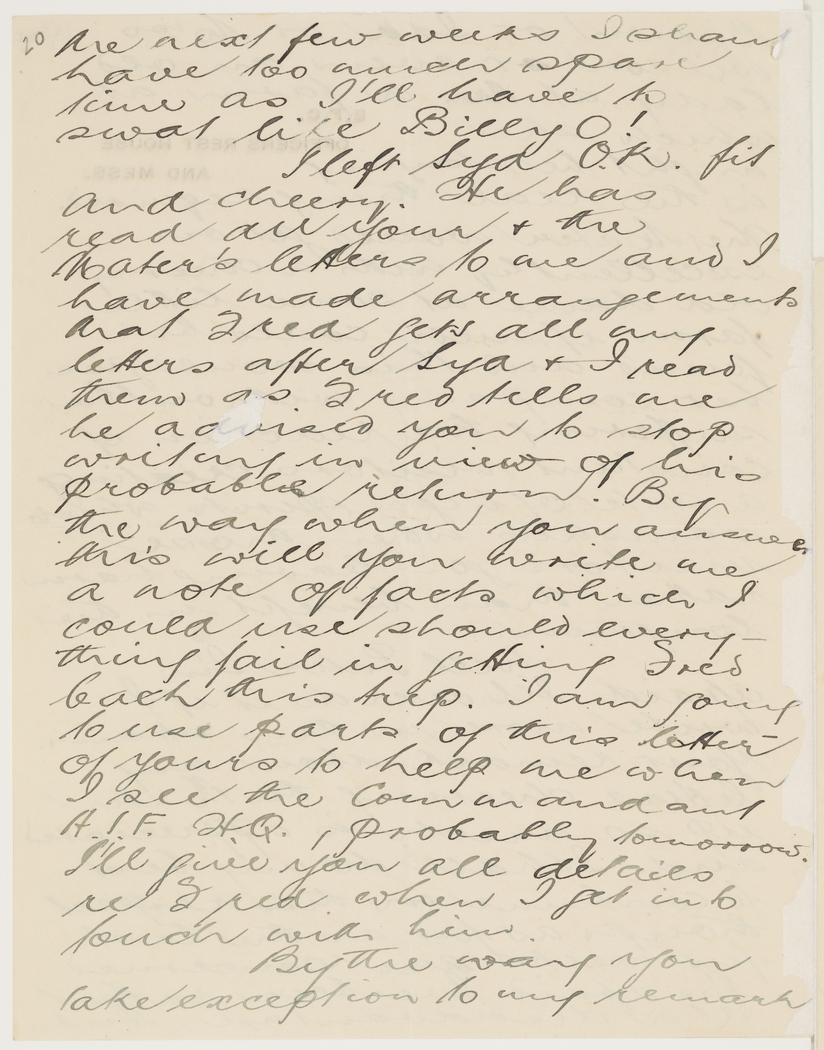 20
the next few weeks I shan't
have too much spare
time as I'll have to
swat like Billy O!
I left Syd O.K. fit
and cheery. He has
read all your + the
Mater's letters to me and I
have made arrangements
that Fred gets all my
letters after Syd + I read
them as Fred tells me
he advised you to stop
writing in view of his
probable return. By
the way when you answer
this will you write me
a note of facts which I
could use should every-
thing fail in getting Fred
back this trip. I am going
to use parts of this letter
of yours to help me when
I see the Commandant
A.I.F. HQ., probably tomorrow.
I'll give you all details
re Fred when I get into
touch with him.
By the way you
take exception to my remark
OFFICERS REST HOUSE
AND MESS.